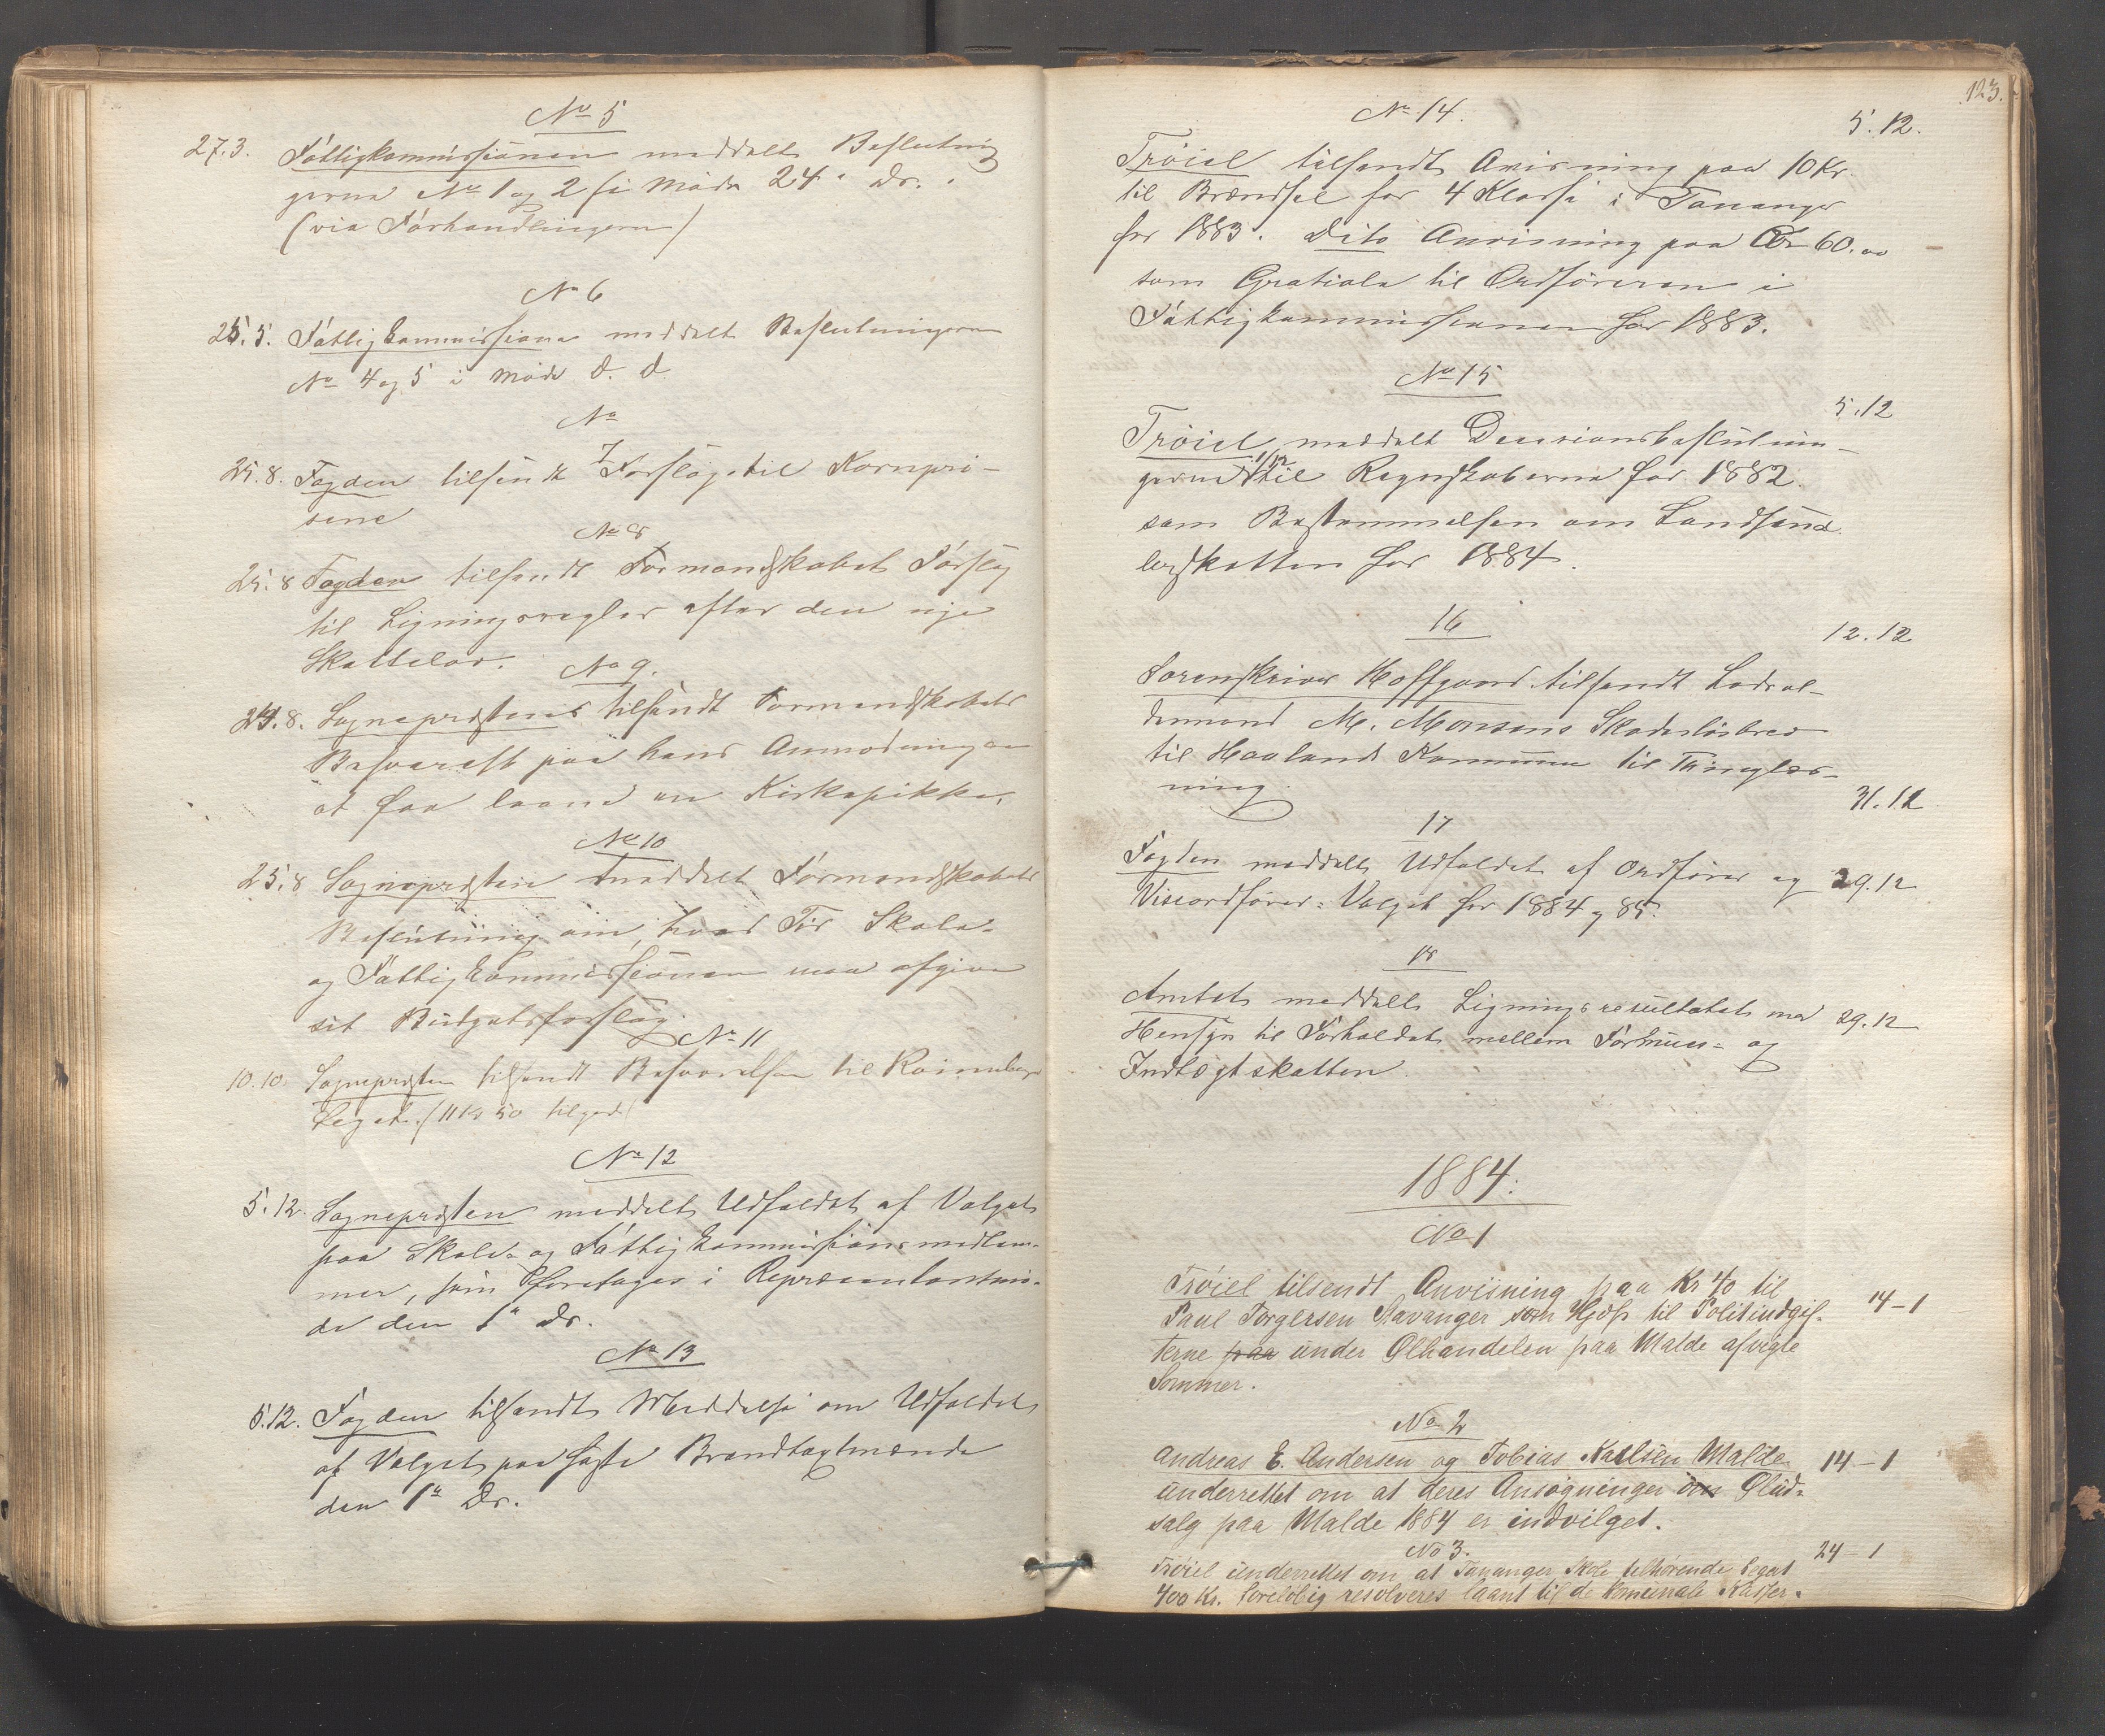 No 5
27.3. Fattigkommissionen meddelt Beslutnin
gerne No 1 og 2 fi Møde 24de ds.
(via Forhandlingerne)
No 6
25.5. Fattigkommissione meddelt Beslutningerne
No 4 og 5 i Møde d. d.
No
7
25.8. Fogden tilsendt Forslag til Kornpri-
sene
No 8
25.8 Fogden tilsendt Formandskabets Forslag
til Ligningsregler efter den nye
Skattelov.
No 9.
25.8. Sognepresten tilsendt Formandskabets
Besvarelse paa hans Anmodning om
at faa laane en Kirkepikke.
No 10
25.8 Sognepresten meddelt Formandskabets
Beslutning om, hvad Tid Skole-
og Fattigkommissionen maa afgive
sit Budgetsforslag.
No 11
10.10. Sognepresten tilsendt Besvarelsen til
Legat. (11 Kr 50 tilgode)
No 12
5.12. Sognepresten meddelt Udfaldet af Valget
paa Skole- og Fattigkommissionsmedlem-
mer, som foretages i Repræsentantmø-
de den 1e ds.
No 13
5.12. Fogden tilsendt Meddelse om Udfaldet
af Valget paa faste Brandtaxtmænde
den 1e ds.
123.
No 14.
5.12.
Trøiel tilsendt Anvisning paa 10 Kr.
til Brændsel for 4 Klasse i Tananger
for 1883. Dito Anvisning paa Kr 60.00
som Gratiale til Ordføreren i
Fattigkommissionen for 1883.
No 15
5.12
Trøiel meddelt Decisionsbeslutnin-
gerne 1/12 til Regnskaberne for 1882
sam Bestemmelsen om Landhand
lerskatten for 1884.
16
12.12
Sorenskriver Hoffgaard tilsendt Lods ol-
dermand M. Monsens Skadesløsbrev
til Haaland Kommune til Thinglæs-
ning.
31.12
17
Fogden meddelt Udfaldet af Ordfører og 29.12
Viseordfører-Valget for 1884 og 85.
18
Amtet meddelt Ligningsresultatet med 29.12
Hensyn til Forholdet mellem Formues- og
Indtægtskatten.
1884.
No 1
Trøiel tilsendt Anvisning paa Kr 40 til
Paul Torgersen Stavanger som Hjælp til Politiudgif- 14-1
terne paa under Ølhandelen paa Malde afvigte
Sommer.
No 2
Andreas E. Andersen og Tobias Karlsen Malde 14-1
underrettet om at deres Ansøgninger om Ølud-
salg paa Malde 1884 er indvilget.
No 3.
24-1
Trøiel underrettet om at Tananger Skole tilhørende Legat
400 Kr. foreløbig resolveres laant til de komunale Kasser.